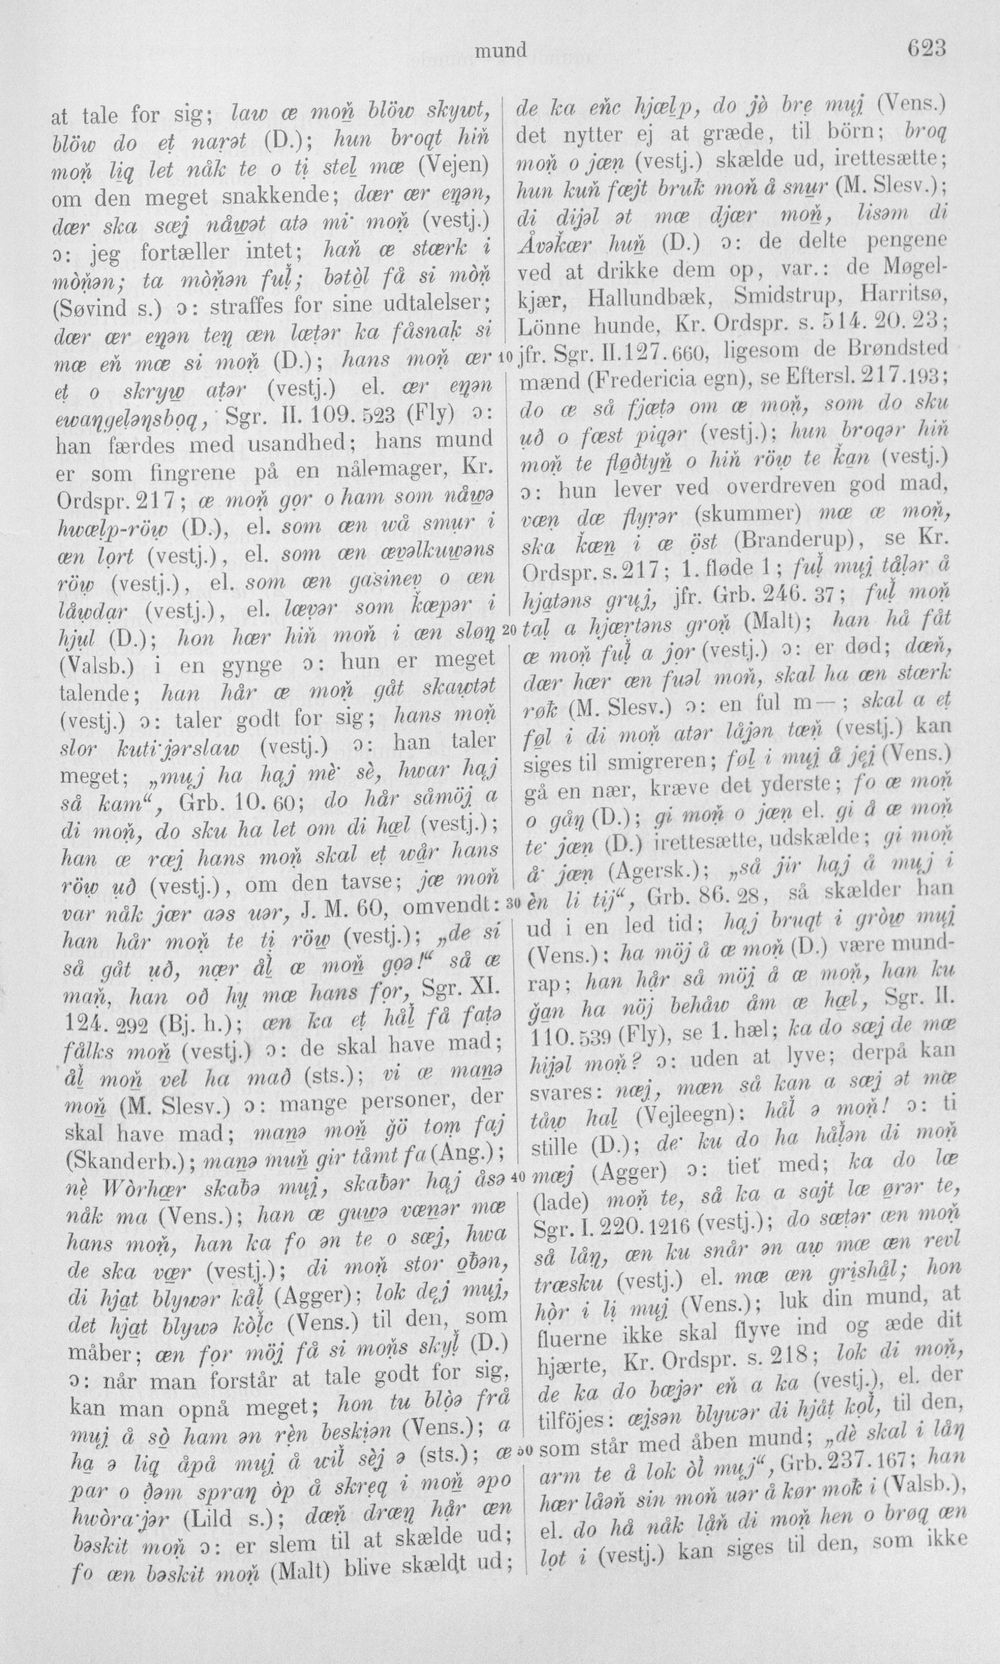 mund
623
at tale for sig; law æ moṅ blöw skywt,
blöw do et narət (D.); hun broqt hiṅ
moṅ liq let nåk te o ti stel mæ (Vejen)
om den meget snakkende; dær ær eŋən,
dær ska sæj nåwət atə mi· moṅ (vestj.)
ɔ: jeg fortæller intet; haṅ æ stærk i
mòṅən; ta mòṅən ful; bətòl få si mòṅ
(Søvind s.) ɔ: straffes for sine udtalelser;
dær ær eŋən teŋ æn lætər ka fåsnak si
mæ eṅ mæ si moṅ (D.); hans moṅ ær
et o skryw atər (vestj.) el. ær eŋən
ewaŋgeləŋsboq, Sgr. II. 109. 523 (Fly) ɔ:
han færdes med usandhed; hans mund
er som fingrene på en nålemager, Kr.
Ordspr. 217; æ moṅ gor o ham som nåwə
hwælp-röw (D.), el. som æn wå smur i
æn lort (vestj.), el. som æn ævəlkuwəns
röw (vestj.), el. som æn gasinev o æn
låwdar (vestj.), el. lævər som kæpər i
hjul (D.); hon hær hiṅ moṅ i æn sloŋ
(Valsb.) i en gynge ɔ: hun er meget
talende; han hår æ moṅ gåt skawtət
(vestj.) ɔ: taler godt for sig; hans moṅ
slor kuti·jərslaw (vestj.) ɔ: han taler
meget; „muj ha haj mè· sè, hwar haj
så kam“, Grb. 10. 60; do hår såmöj a
di moṅ, do sku ha let om di hæl (vestj.);
han æ ræj hans moṅ skal et wår hans
röw uð (vestj.), om den tavse; jæ moṅ
var nåk jær aəs uər, J. M. 60, omvendt:
han hår moṅ te ti röw (vestj.); „de si
så gåt uð, nær ål æ moṅ goə!“ så æ
maṅ, han oð hy mæ hans for, Sgr. XI.
124. 292 (Bj. h.); æn ka et hål få fatə
fålks moṅ (vestj.) ɔ: de skal have mad;
ål moṅ vel ha mað (sts.); vi æ manə
moṅ (M. Slesv.) ɔ: mange personer, der
skal have mad; manə moṅ gö tom faj
(Skanderb.); manə muṅ gir tåmt fa (Ang.);
nè Wòrhær skabə muj, skabər haj åsə
nåk ma (Vens.); han æ guwə vænər mæ
hans moṅ, han ka fo ən te o sæj, hwa
de ska vær (vestj.); di moṅ stor obən,
di hjat blywər kål (Agger); lok dej muj,
det hjat blywə kòlc (Vens.) til den, som
måber; æn for möj få si moṅs skyl (D.)
ɔ: når man forstår at tale godt for sig,
kan man opnå meget; hon tu blòə frå
muj å sò ham ən rèn beskiən (Vens.); a
ha ə liq åpå muj å wil sèj ə (sts.); æ
par o ðəm spraŋ òp å skreq i moṅ əpo
hwòra·jər (Lild s.); dæṅ dræŋ hår æn
bəskit moṅ ɔ: er slem til at skælde ud;
fo æn bəskit moṅ (Malt) blive skældt ud;
de ka eṅc hjælp, do jò bre muj (Vens.)
det nytter ej at græde, til börn; broq
moṅ o jæn (vestj.) skælde ud, irettesætte;
hun kuṅ fæjt bruk moṅ å snur (M. Slesv.);
di dijəl ət mæ djær moṅ, lisəm di
Åvəkær huṅ (D.) ɔ: de delte pengene
ved at drikke dem op, var.: de Møgel-
kjær, Hallundbæk, Smidstrup, Harritsø,
Lönne hunde, Kr. Ordspr. s. 514. 20. 23;
10 jfr. Sgr. II.127.660, ligesom de Brøndsted
mænd (Fredericia egn), se Eftersl. 217.193;
do æ så fjætə om æ moṅ, som do sku
uð o fæst piqər (vestj.); hun broqər hiṅ
moṅ te fløðtyṅ o hiṅ röw te kan (vestj.)
ɔ: hun lever ved overdreven god mad,
væn dæ flyrər (skummer) mæ æ moṅ,
ska kæn i æ öst (Branderup), se Kr.
Ordspr. s. 217; 1. fløde 1; ful muj tålər å
hjatəns gruj, jfr. Grb. 246. 37; ful moṅ
20 tal a hjærtəns groṅ (Malt); han hå fåt
æ moṅ ful a jor (vestj.) ɔ: er død; dæṅ,
dær hær æn fuəl moṅ, skal ha æn stærk
røk (M. Slesv.) ɔ: en ful m—; skal a et
føl i di moṅ atər låjən tæṅ (vestj.) kan
siges til smigreren; føl i muj å jej (Vens.)
gå en nær, kræve det yderste; fo æ moṅ
o gåŋ (D.); gi moṅ o jæn el. gi å æ moṅ
te· jæn (D.) irettesætte, udskælde; gi moṅ
å· jæn (Agersk.); „så jir haj å muj i
30 èn li tij“, Grb. 86. 28, så skælder han
ud i en led tid; haj bruqt i gròw muj
(Vens.); ha möj å æ moṅ (D.) være mund-
rap; han hår så möj å æ moṅ, han ku
gan ha nöj behåw åm æ hæl, Sgr. II.
110. 539 (Fly), se 1. hæl; ka do sæj de mæ
hijəl moṅ? ɔ: uden at lyve; derpå kan
svares: næj, mæn så kan a sæj ət mæ
tåw hal (Vejleegn); hål ə moṅ! ɔ: ti
stille (D.); de· ku do ha hålən di moṅ
40 mæj (Agger) ɔ: tiet med; ka do læ
(lade) moṅ te, så ka a sajt læ ørər te,
Sgr. I. 220. 1216 (vestj.); do sætər æn moṅ
så låŋ, æn ku snår ən aw mæ æn revl
træsku (vestj.) el. mæ æn grishål; hon
hòr i li muj (Vens.); luk din mund, at
fluerne ikke skal flyve ind og æde dit
hjærte, Kr. Ordspr. s. 218; lok di moṅ,
de ka do bæjər eṅ a ka (vestj.), el. der
tilföjes: æjsən blywər di hjåt kol, til den,
50 som står med åben mund; „dè skal i låŋ
arm te å lok òl muj“, Grb. 237. 167; han
hær låəṅ sin moṅ uər å kør mok i (Valsb.),
el. do hå nåk låṅ di moṅ hen o brøq æn
lot i (vestj.) kan siges til den, som ikke